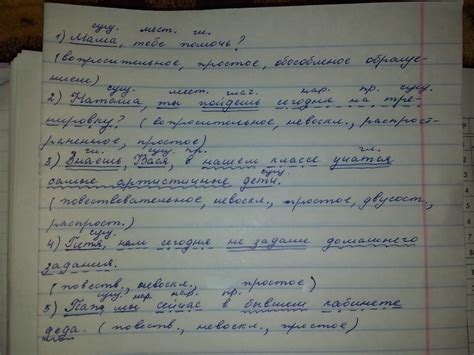 сущ. мест. гл.
1) Мама, тебе помочь?
(вопросительное, простое, обособленное обраще-
ние)
сущ. мест. глаг. нар. пр. сущ.
2) Наташа, ты пойдёшь сегодня на тре-
нировку? (вопросительное, невоскл., распрост-
раненное, простое)
гл. сущ. пр. гл.
3) Знаешь, Вася, в нашем классе учатся
самые артистичные дети.
сущ.
(повествовательное, невоскл., простое, двусост.,
распрост.)
сущ.
4) Петя, нам сегодня не задали домашнего
задания.
(повеств., невоскл., простое)
сущ. нар. пр.
5) Папа мы сейчас в бывшем кабинете
деда. (повеств., невоскл., простое)